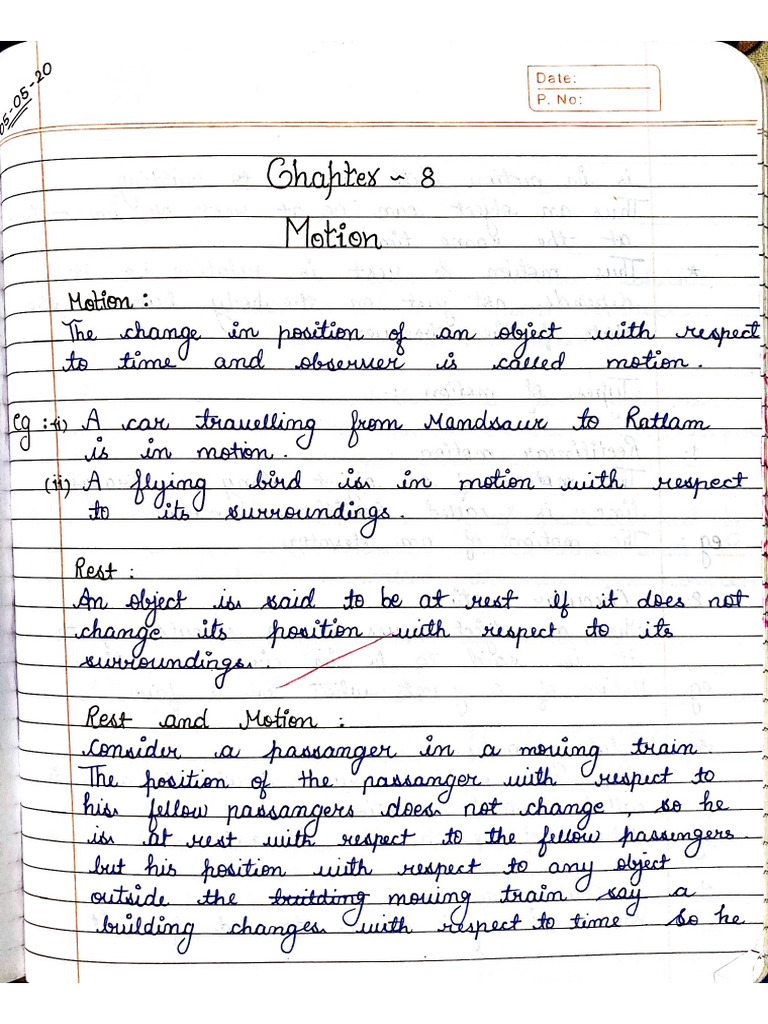 05-05-20
Date:
P. No:
Chapter ~ 8
Motion
Motion :
The change in position of an object with respect
to time and observer is called motion.
eg :-(i) A car travelling from Mandsaur to Ratlam
is in motion.
(ii) A flying bird is in motion with respect
to its surroundings.
Rest :
An object is said to be at rest if it does not
change its position with respect to its
surroundings.
Rest and Motion :
Consider a passanger in a moving train.
The position of the passanger with respect to
his fellow passangers does not change, so he
is at rest with respect to the fellow passengers.
but his position with respect to any object
outside the building moving train say a
building changes with respect to time so he